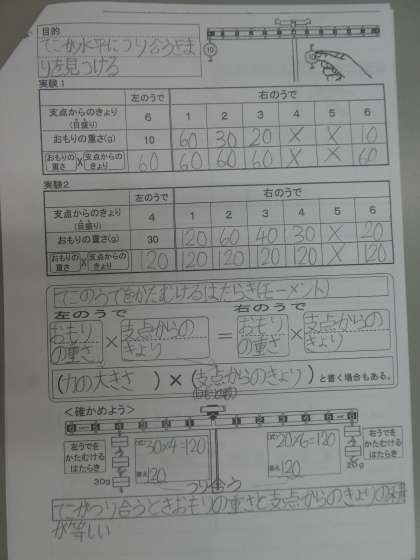 目的
てこが水平につり合うきま
りを見つける
10
10
実験1
左のうで 右のうで
支点からのきょり(目盛り) 6 1 2 3 4 5 6
おもりの重さ(g) 10 60 30 20 × × 10
おもりの重さ×支点からのきょり 60 60 60 60 × × 60
実験2
左のうで 右のうで
支点からのきょり(目盛り) 4 1 2 3 4 5 6
おもりの重さ(g) 30 120 60 40 30 × 20
おもりの重さ×支点からのきょり 120 120 120 120 120 × 120
てこのうでをかたむけるはたらき(モーメント)
左のうで 右のうで
おもりの重さ × 支点からのきょり = おもりの重さ × 支点からのきょり
(力の大きさ) × (支点からのきょり) と書く場合もある。
<確かめよう>
左うでをかたむけるはたらき
(式) 30×4=120
答え 120
30g
(式) 20×6=120
答え 120
右うでをかたむけるはたらき
20g
つり合う
てこがつり合うときおもりの重さと支点からのきょりの
が等しい